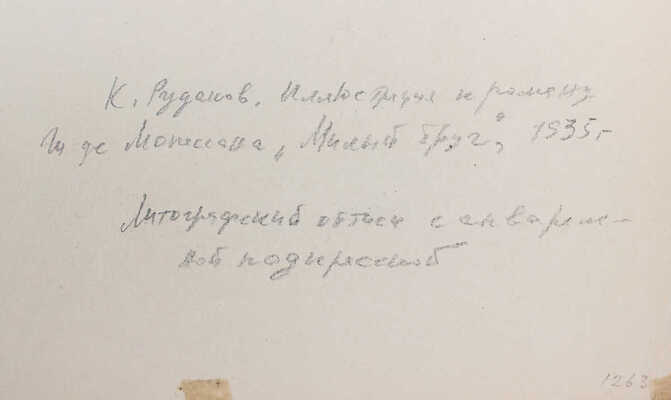 К. Рудаков. Иллюстрация к роману
Ги де Мопассана „Милый друг“, 1935,-
Литографский оттиск с акварель-
ной подкраской
1263